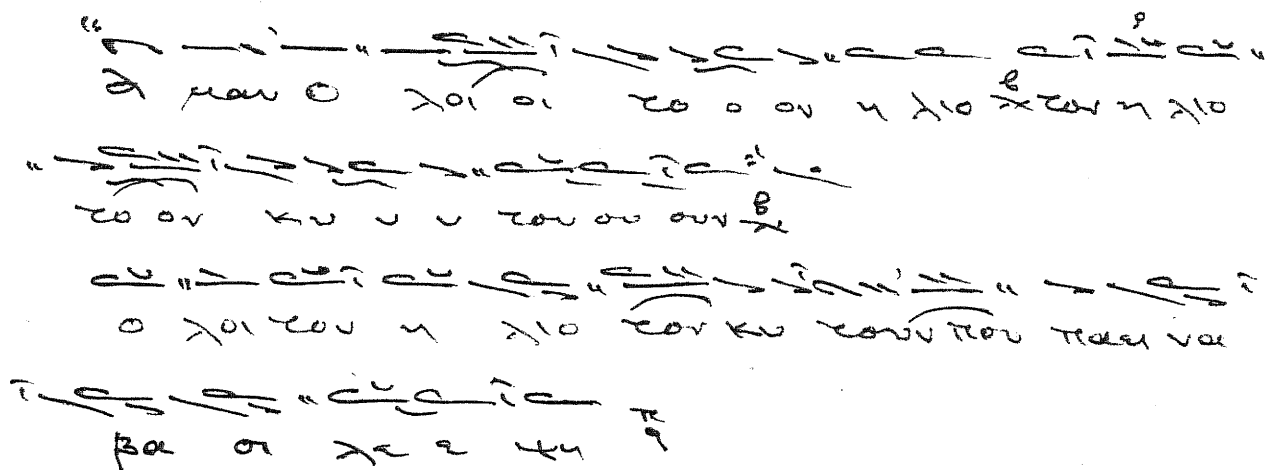 α μαν ο λοι οι το ο ον η λιο τον η λιο
το ον κυ υ υ του ου ουν
ο λοι τον η λιο τον κυ τουν που παει να
βα σι λε ε ψη